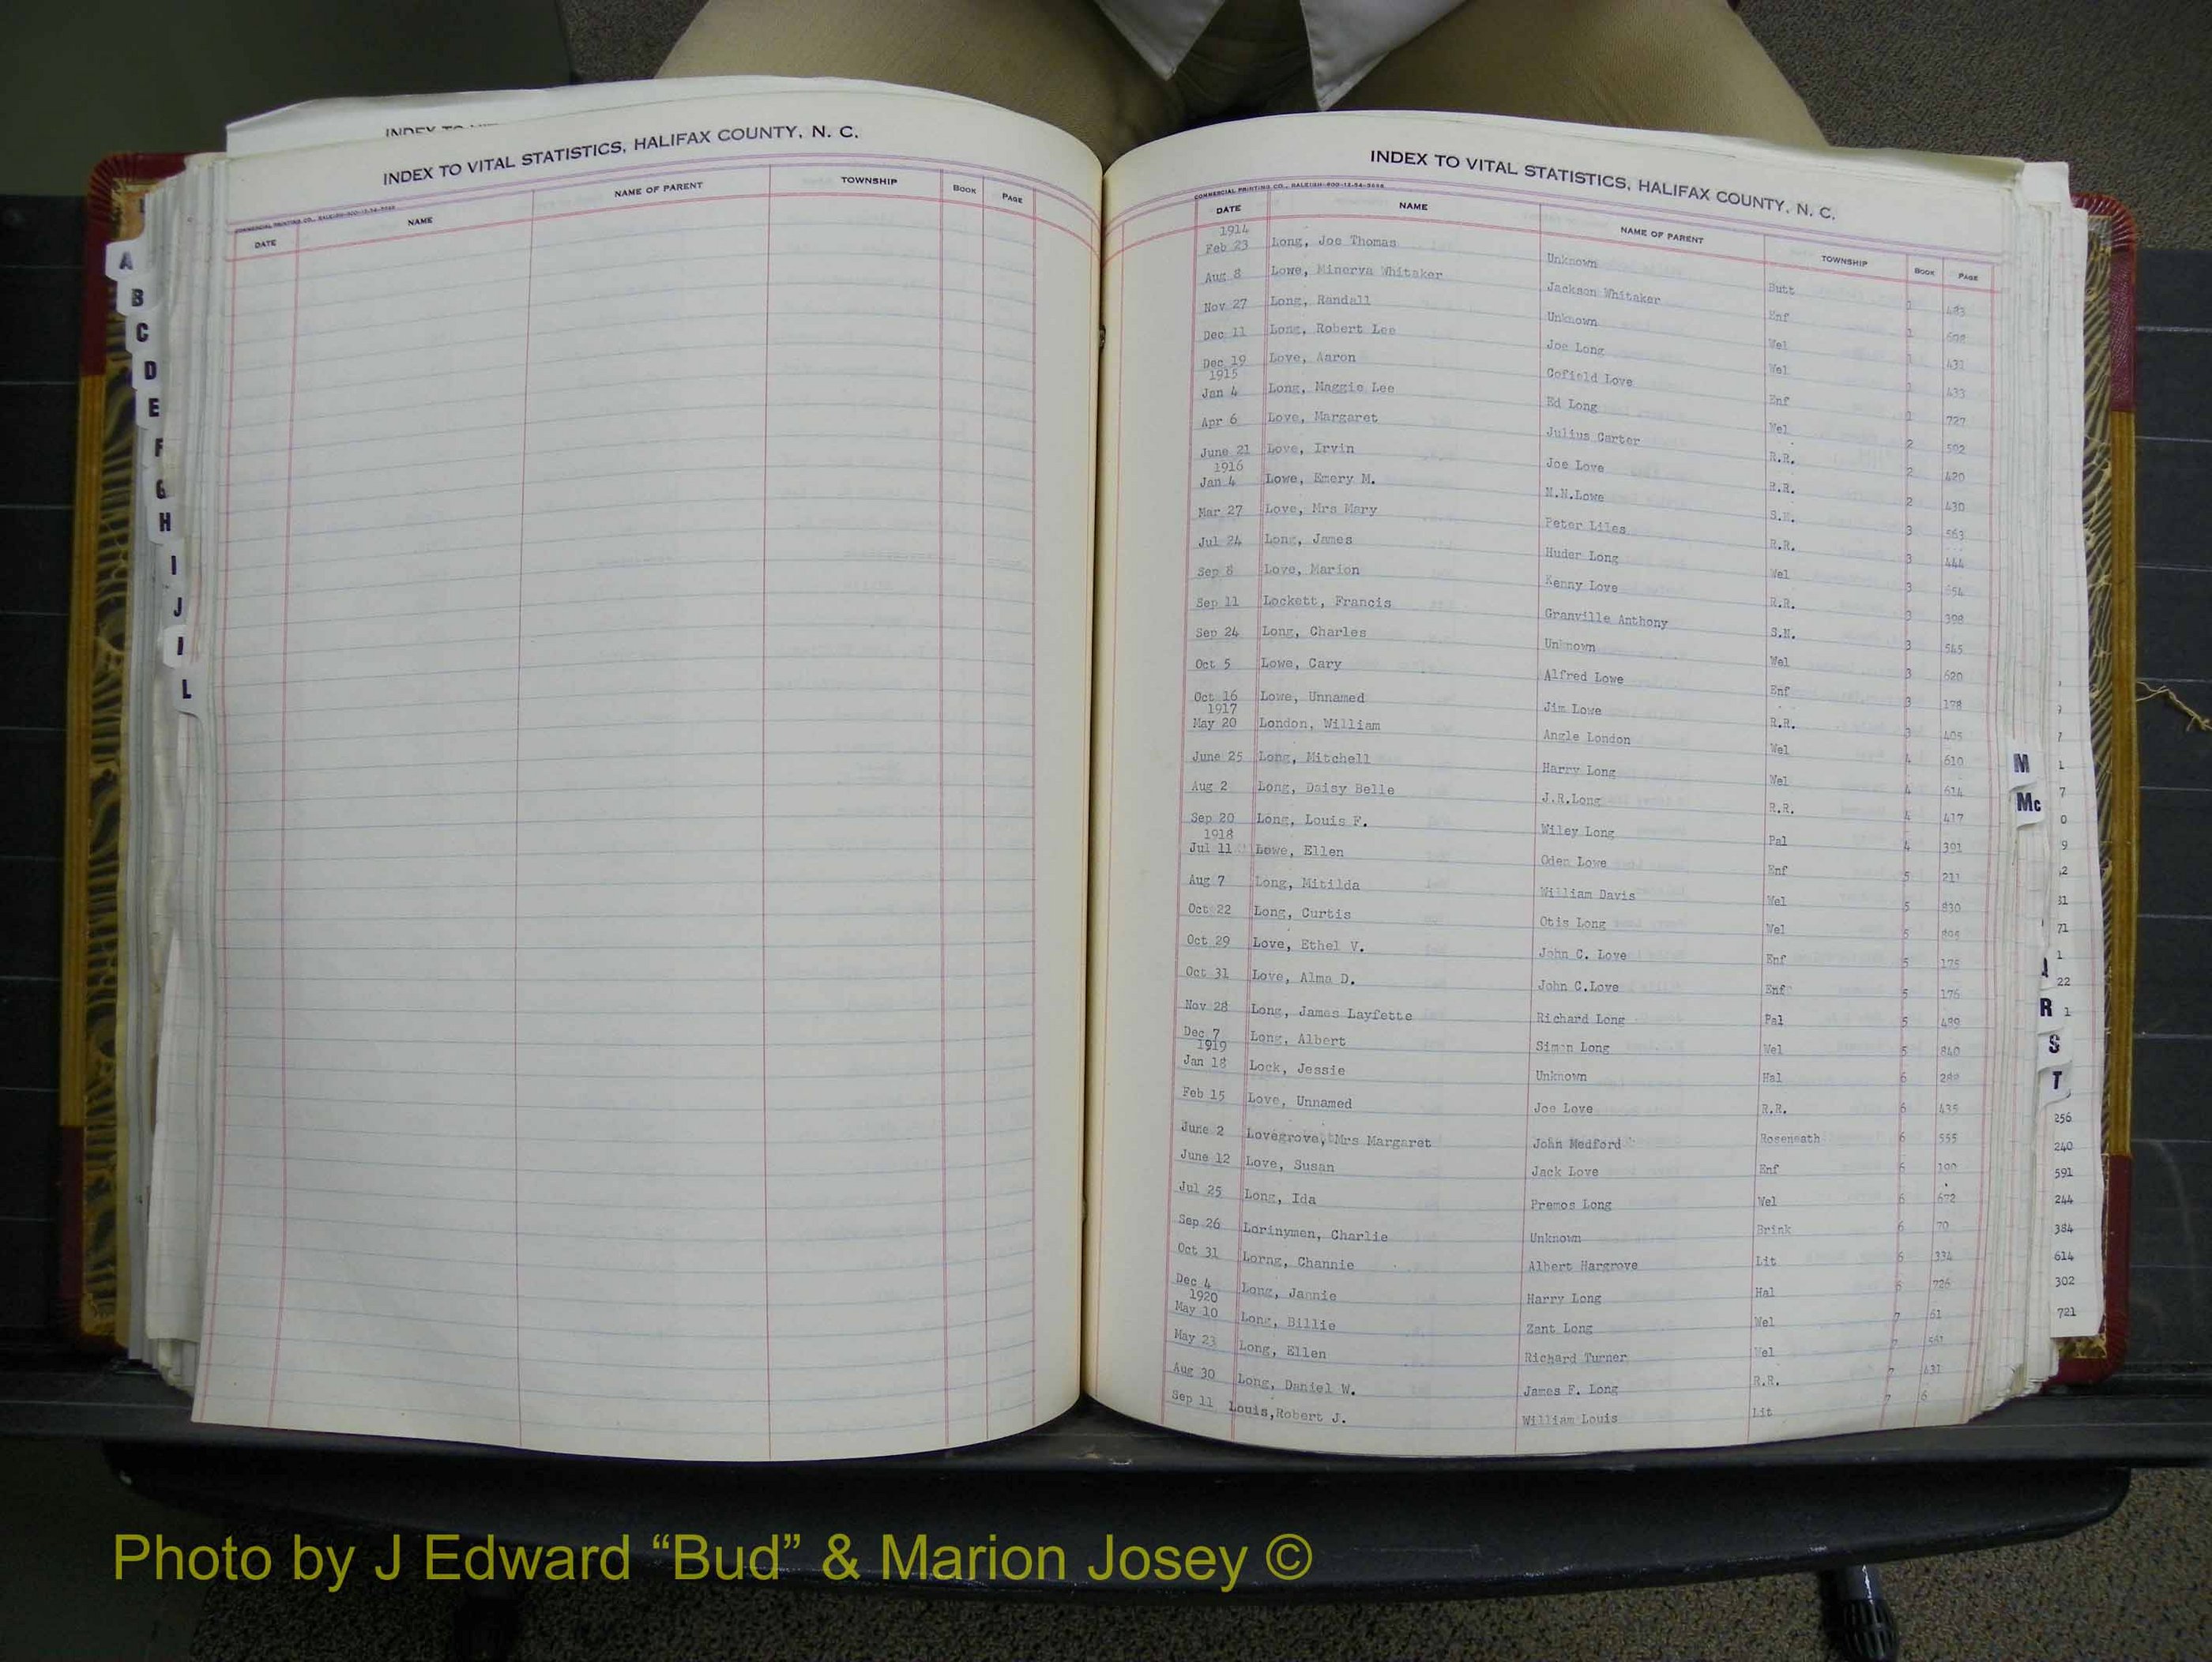 INDEX TO VITAL STATISTICS, HALIFAX COUNTY, N. C.
COMMERCIAL PRINTING CO., RALEIGH
DATE NAME NAME OF PARENT TOWNSHIP BOOK PAGE
A
B
C
D
E
F
G
H
I
J
L
INDEX TO VITAL STATISTICS, HALIFAX COUNTY, N. C.
COMMERCIAL PRINTING CO., RALEIGH
DATE NAME NAME OF PARENT TOWNSHIP BOOK PAGE
1914
Feb 23 Long, Joe Thomas Unknown Butt 1 483
Aug 8 Lowe, Minerva Whitaker Jackson Whitaker Enf 1 608
Nov 27 Long, Randall Unknown Wel 1 431
Dec 11 Long, Robert Lee Joe Long Wel 1 433
Dec 19 Love, Aaron Cofield Love Enf 1 727
1915
Jan 4 Long, Maggie Lee Ed Long Wel 2 502
Apr 6 Love, Margaret Julius Carter R.R. 2 420
June 21 Love, Irvin Joe Love R.R. 2 430
1916
Jan 4 Lowe, Emery M. Lowe S.N. 3 563
Mar 27 Love, Mrs Mary Peter Liles R.R. 3 444
Jul 24 Long, James Huder Long Wel 3
Sep 8 Love, Marion Kenny Love R.R. 3 398
Sep 11 Lockett, Francis Granville Anthony S.N. 3 545
Sep 24 Long, Charles Unknown Wel 3 620
Oct 5 Lowe, Cary Alfred Lowe Enf 3 178
Oct 16 Lowe, Unnamed Jim Lowe R.R. 3 405
1917
May 20 London, William Angle London Wel 4 610
June 25 Long, Mitchell Harry Long Wel 4 614
Aug 2 Long, Daisy Belle J.R.Long R.R. 4 417
Sep 20 Long, Louis F. Wiley Long Pal 4 391
1918
Jul 11 Lowe, Ellen Oden Lowe Enf 5 211
Aug 7 Long, Mitilda William Davis Wel 5 830
Oct 22 Long, Curtis Otis Long Wel 5
Oct 29 Love, Ethel V. John C. Love Enf 5 175
Oct 31 Love, Alma D. John C.Love Enf 5 176
Nov 28 Long, James Layfette Richard Long Pal 5 489
Dec 7 Long, Albert Simon Long Wel 5 840
1919
Jan 18 Lock, Jessie Unknown Hal 6
Feb 15 Love, Unnamed Joe Love R.R. 6 435
June 2 Lovegrove, Mrs Margaret John Medford Roseneath 6 555
June 12 Love, Susan Jack Love Enf 6
Jul 25 Long, Ida Premos Long Wel 6 672
Sep 26 Lorinymen, Charlie Unknown Brink 6 70
Oct 31 Lorng, Channie Albert Hargrove Lit 6 334
Dec 4 Long, Jannie Harry Long Hal 6 726
1920
May 10 Long, Billie Zant Long Wel 7 61
May 23 Long, Ellen Richard Turner Wel 7
Aug 30 Long, Daniel W. James F. Long R.R. 7 431
Sep 11 Louis,Robert J. William Louis Lit 7 6
M
Mc
R
S
T
256
240
591
244
384
614
302
721
Photo by J Edward “Bud” & Marion Josey ©